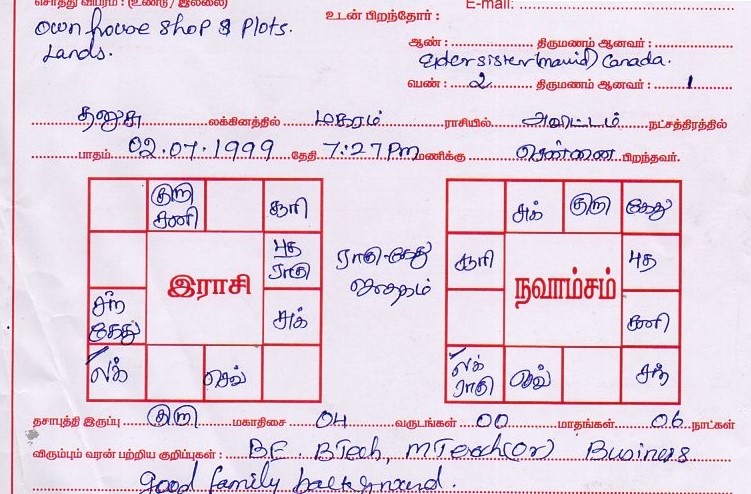 சொத்து விபரம் : (உண்டு / இல்லை) E-mail:
own house shop & plots. உடன் பிறந்தோர் :
Lands. ஆண் : திருமணம் ஆனவர் :
Elder sister (married) Canada.
பெண் : 2 திருமணம் ஆனவர் : 1
தனுசு லக்கினத்தில் மகரம் ராசியில் அவிட்டம் நட்சத்திரத்தில்
பாதம் 02.07.1999 தேதி 7:27 Pm மணிக்கு சென்னை பிறந்தவர்.
குரு சனி சூரி
புத ராகு
இராசி
சந் கேது
சுக்
லக் செவ்
ராகு-கேது
சுக் குரு கேது
சூரி புத
நவாம்சம்
சனி
லக் ராகு செவ் சந்
தசாபுத்தி இருப்பு குரு மகாதிசை 04 வருடங்கள் 00 மாதங்கள் 06 நாட்கள்
விரும்பும் வரன் பற்றிய குறிப்புகள் : BE. BTech, MTech (or) Business
good family background.